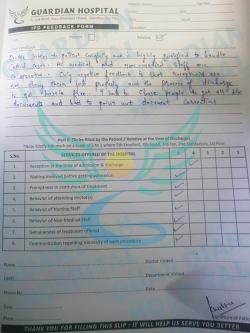 GUARDIAN HOSPITAL
IPD FEEDBACK FORM
Patient
Relative
Doctor listen to patient carefully and is highly qualified to handle
critical cases. All medical and non-medical staff are
co-operative. Only negative feedback is that receptionists are
not doing their job properly and the process of discharge
is so hassle free. I had to chase people to get all the
documents and had to point out document corrections
Part II (To be filled by the Patient / Relative at the time of Discharge)
S.No. SERVICES OFFERED BY THE HOSPITAL 5 4 3 2 1
1 Reception at the time of admission & discharge
2 Waiting involved before getting admission
3 Promptness in institution of treatment
4 Behavior of attending doctor(s)
5 Behavior of Nursing Staff
6 Behavior of Non-Medical Staff
7 Genuineness of treatment offered
8 Communication regarding necessity of each procedure
Name
Doctor Visited
Department Visited
Phone No
Date
Date
Place
THANK YOU FOR FILLING THIS SLIP : IT WILL HELP US SERVE YOU BETTER